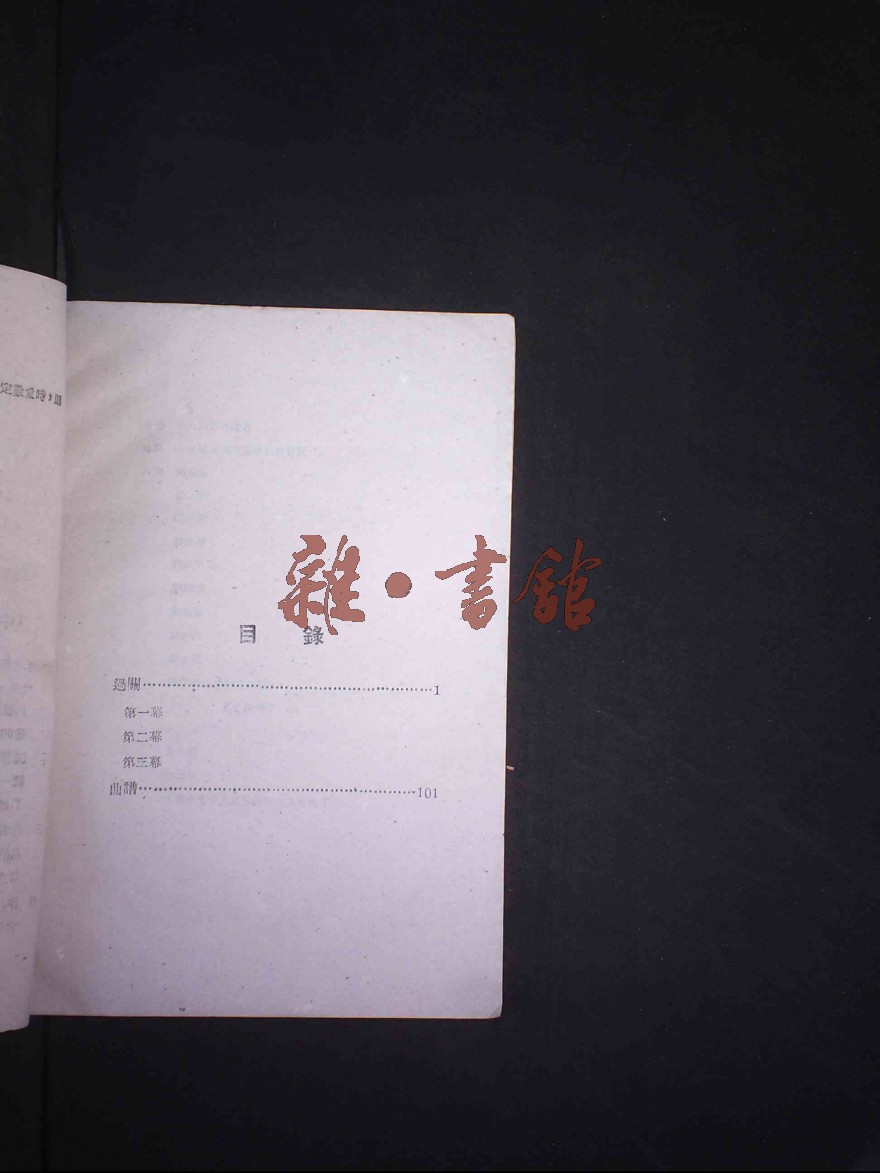 雜·書館
目 錄
過關……………………………………………1
第一幕
第二幕
第三幕
曲譜……………………………………………101